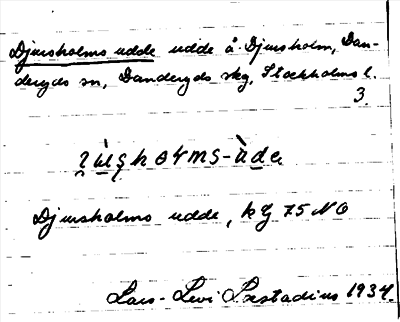 Djursholms udde udde å Djursholm, Dan-
deryds sn, Danderyds skg, Stockholms l.
3.
Djursholms udde, kg 75 NO
Lars-Levi Læstadius 1934.